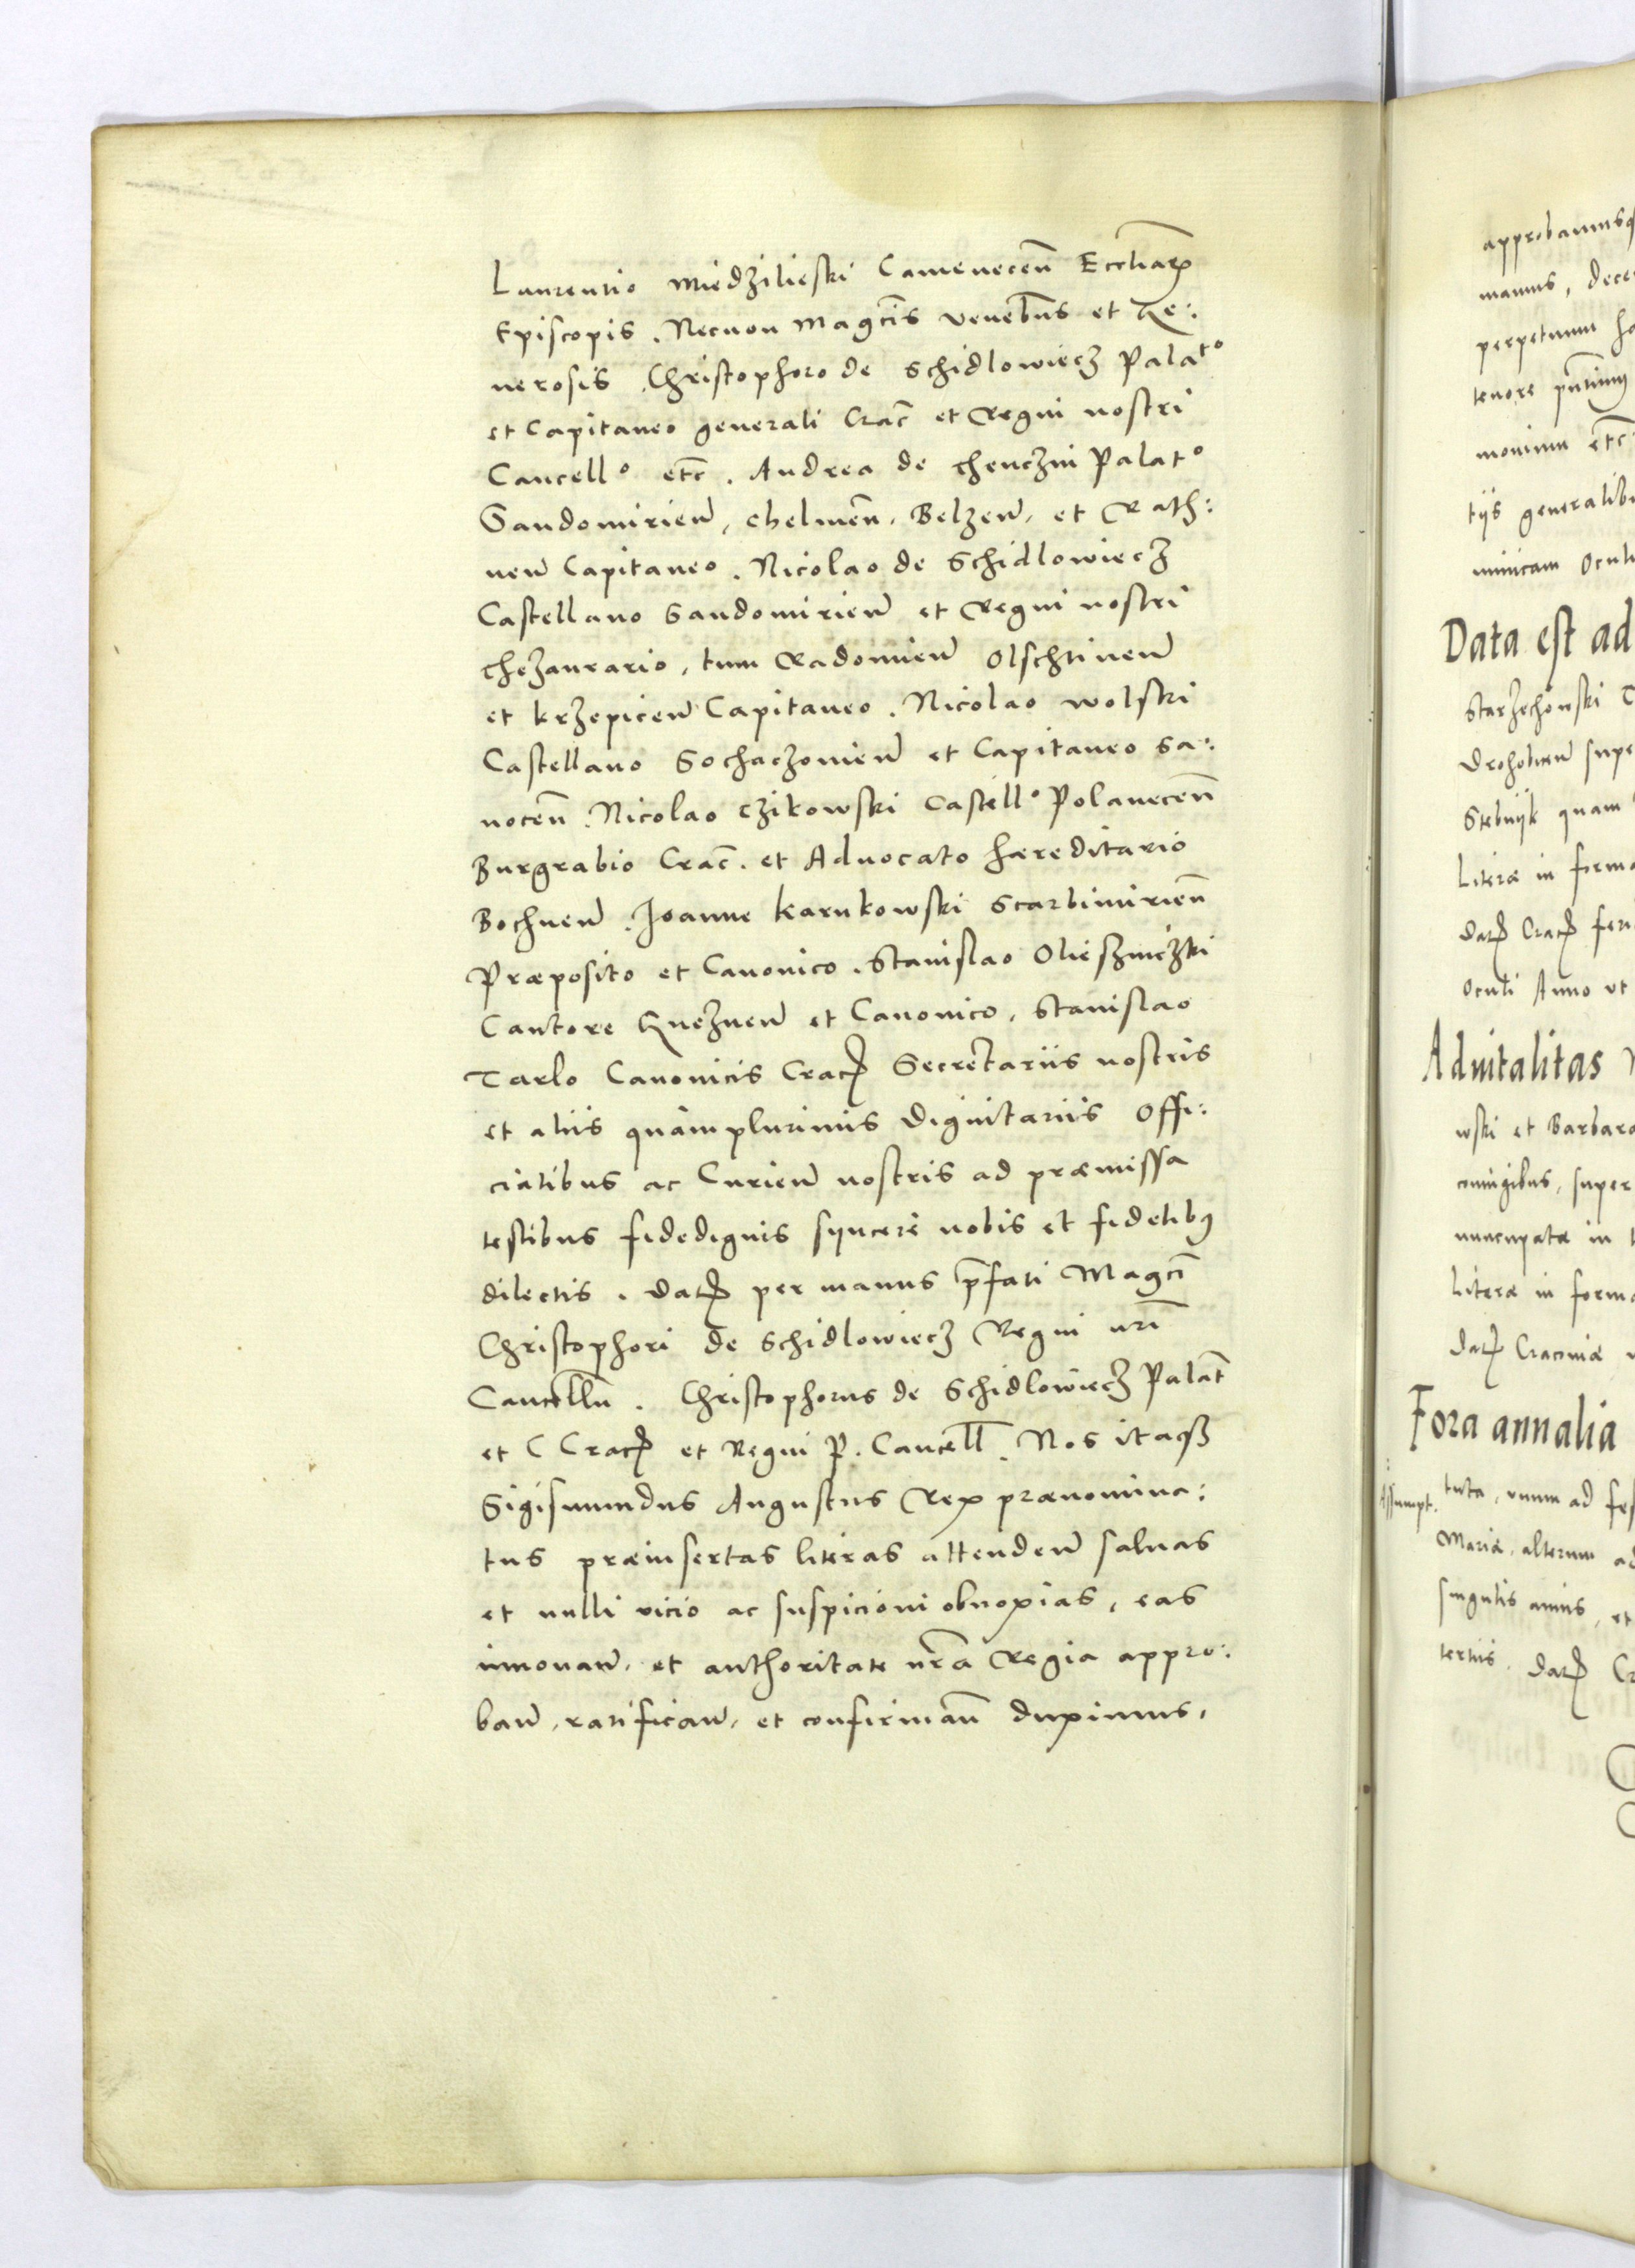 Laurentio Miedzilieski Camenecen̄ Eccliarꝝ
Episcopis . Necnon Magcis veneblibus et Ge:
nerosis Christophoro de Schidlowiecz Palatº
et Capitaneo generali Crac̄ et Regni nostri
Cancellº etc̄ . Andrea de Thenczin Palatº
Sandomirien̄, Chelmen̄, Belzen̄, et Rath:
nen̄ Capitaneo . Nicolao de Schidlowiecz
Castellano Sandomirien̄ et Regni nostri
Thezaurario, tum Radomien̄ Olschtinen̄
et krzepicen̄ Capitaneo . Nicolao Wolski
Castellano Sochaczovien̄ et Capitaneo Sa:
nocen̄ . Nicolao Czikowski Castellº Polanecen̄
Burgrabio Crac̄. et Advocato hæreditario
Bochnen̄ . Joanne karnkowski Scarbimirien̄
Præposito et Canonico . Stanislao Olieszniczki
Cantore Gneznen̄ et Canonico, Stanislao
Tarlo Canonicis Crac̄ Secretariis nostris
et aliis quamplurimis Dignitariis Offi:
cialibus ac Curien̄ nostris ad præmissa
testibus fidedignis syncere nobis et fidelibꝰ
dilectis . Dat̄ per manus p̄fati Magci
Christophori de Schidlowiecz Regni nrī
Cancellrii . Christophorus de Schidlowiecz Palat̄
et C Crac̄ et Regni P. Cancell̄. Nos itaqꝫ
Sigismundus Augustus Rex prænomina:
tus præinsertas literas attenden̄ salvas
et nulli vicio ac suspicioni obnoxias, eas
innovan̄, et authoritate nrā Regia appro:
ban̄, ratifican̄, et confirman̄ duximus,
approbamusqꝫ
mamus, dece
perpetuum ha
tenore pn̄tium
monium etc̄
tiis generalibu
minicam Oculi
Data est ad
Starzechowski
Drohobicen̄ supe
Stebnÿk quam
Literæ in forma
Dat̄ Crac̄ feri
Oculi Anno ut
Advitalitas
wski et Barbara
coniugibus, super
nuncupatæ in
Literæ in forma
Dat̄ Cracoviæ
Fora annalia
Assumpt.
tuta, unum ad fes
Mariæ, alterum ad
singulis annis, et
tertiis. Dat̄ Cr